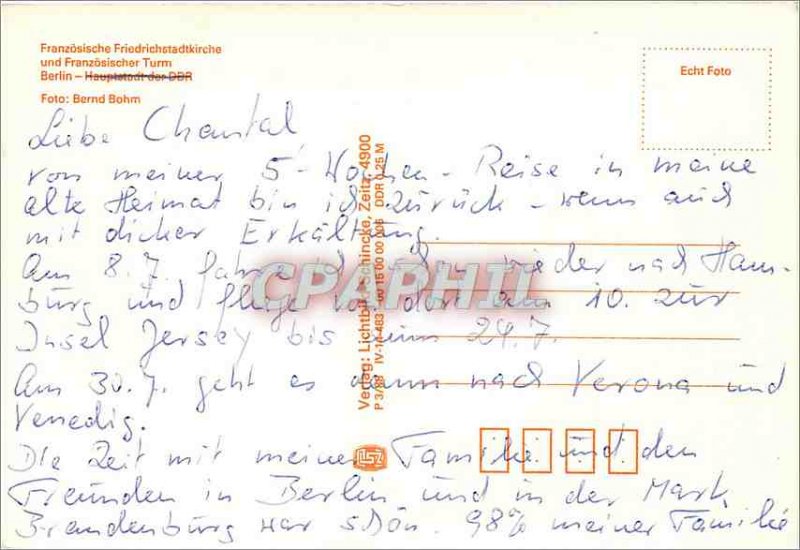 Französische Friedrichstadtkirche
und Französischer Turm
Berlin – Hauptstadt der DDR
Foto: Bernd Bohm
Echt Foto
Liebe Chantal
von meiner 5-Wochen-Reise in meine
alte Heimat bin ich zurück – wenn auch
mit dicker Erkältung.
Am 8.7. fahre ich schon wieder nach Ham-
burg und fliege von dort am 10. zur
Insel Jersey bis zum 24.7.
Am 30.7. geht es dann nach Verona und
Venedig.
Die Zeit mit meiner Familie und den
Freunden in Berlin und in der Mark
Brandenburg war schön. 98% meiner Familie
Verlag: Lichtbild Schincke, Zeitz, 4900
P 3/88 IV-14-483
DDR 1,25 M
CPAPHIL